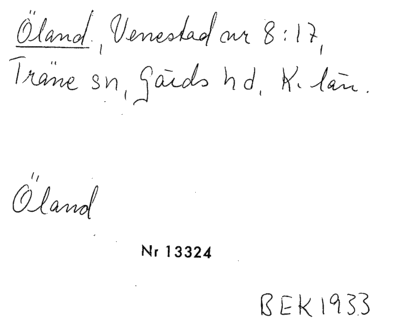 Öland, Venestad nr 8:17,
Träne sn, Gärds hd, K. län.
Öland
Nr 13324
BEK 1933